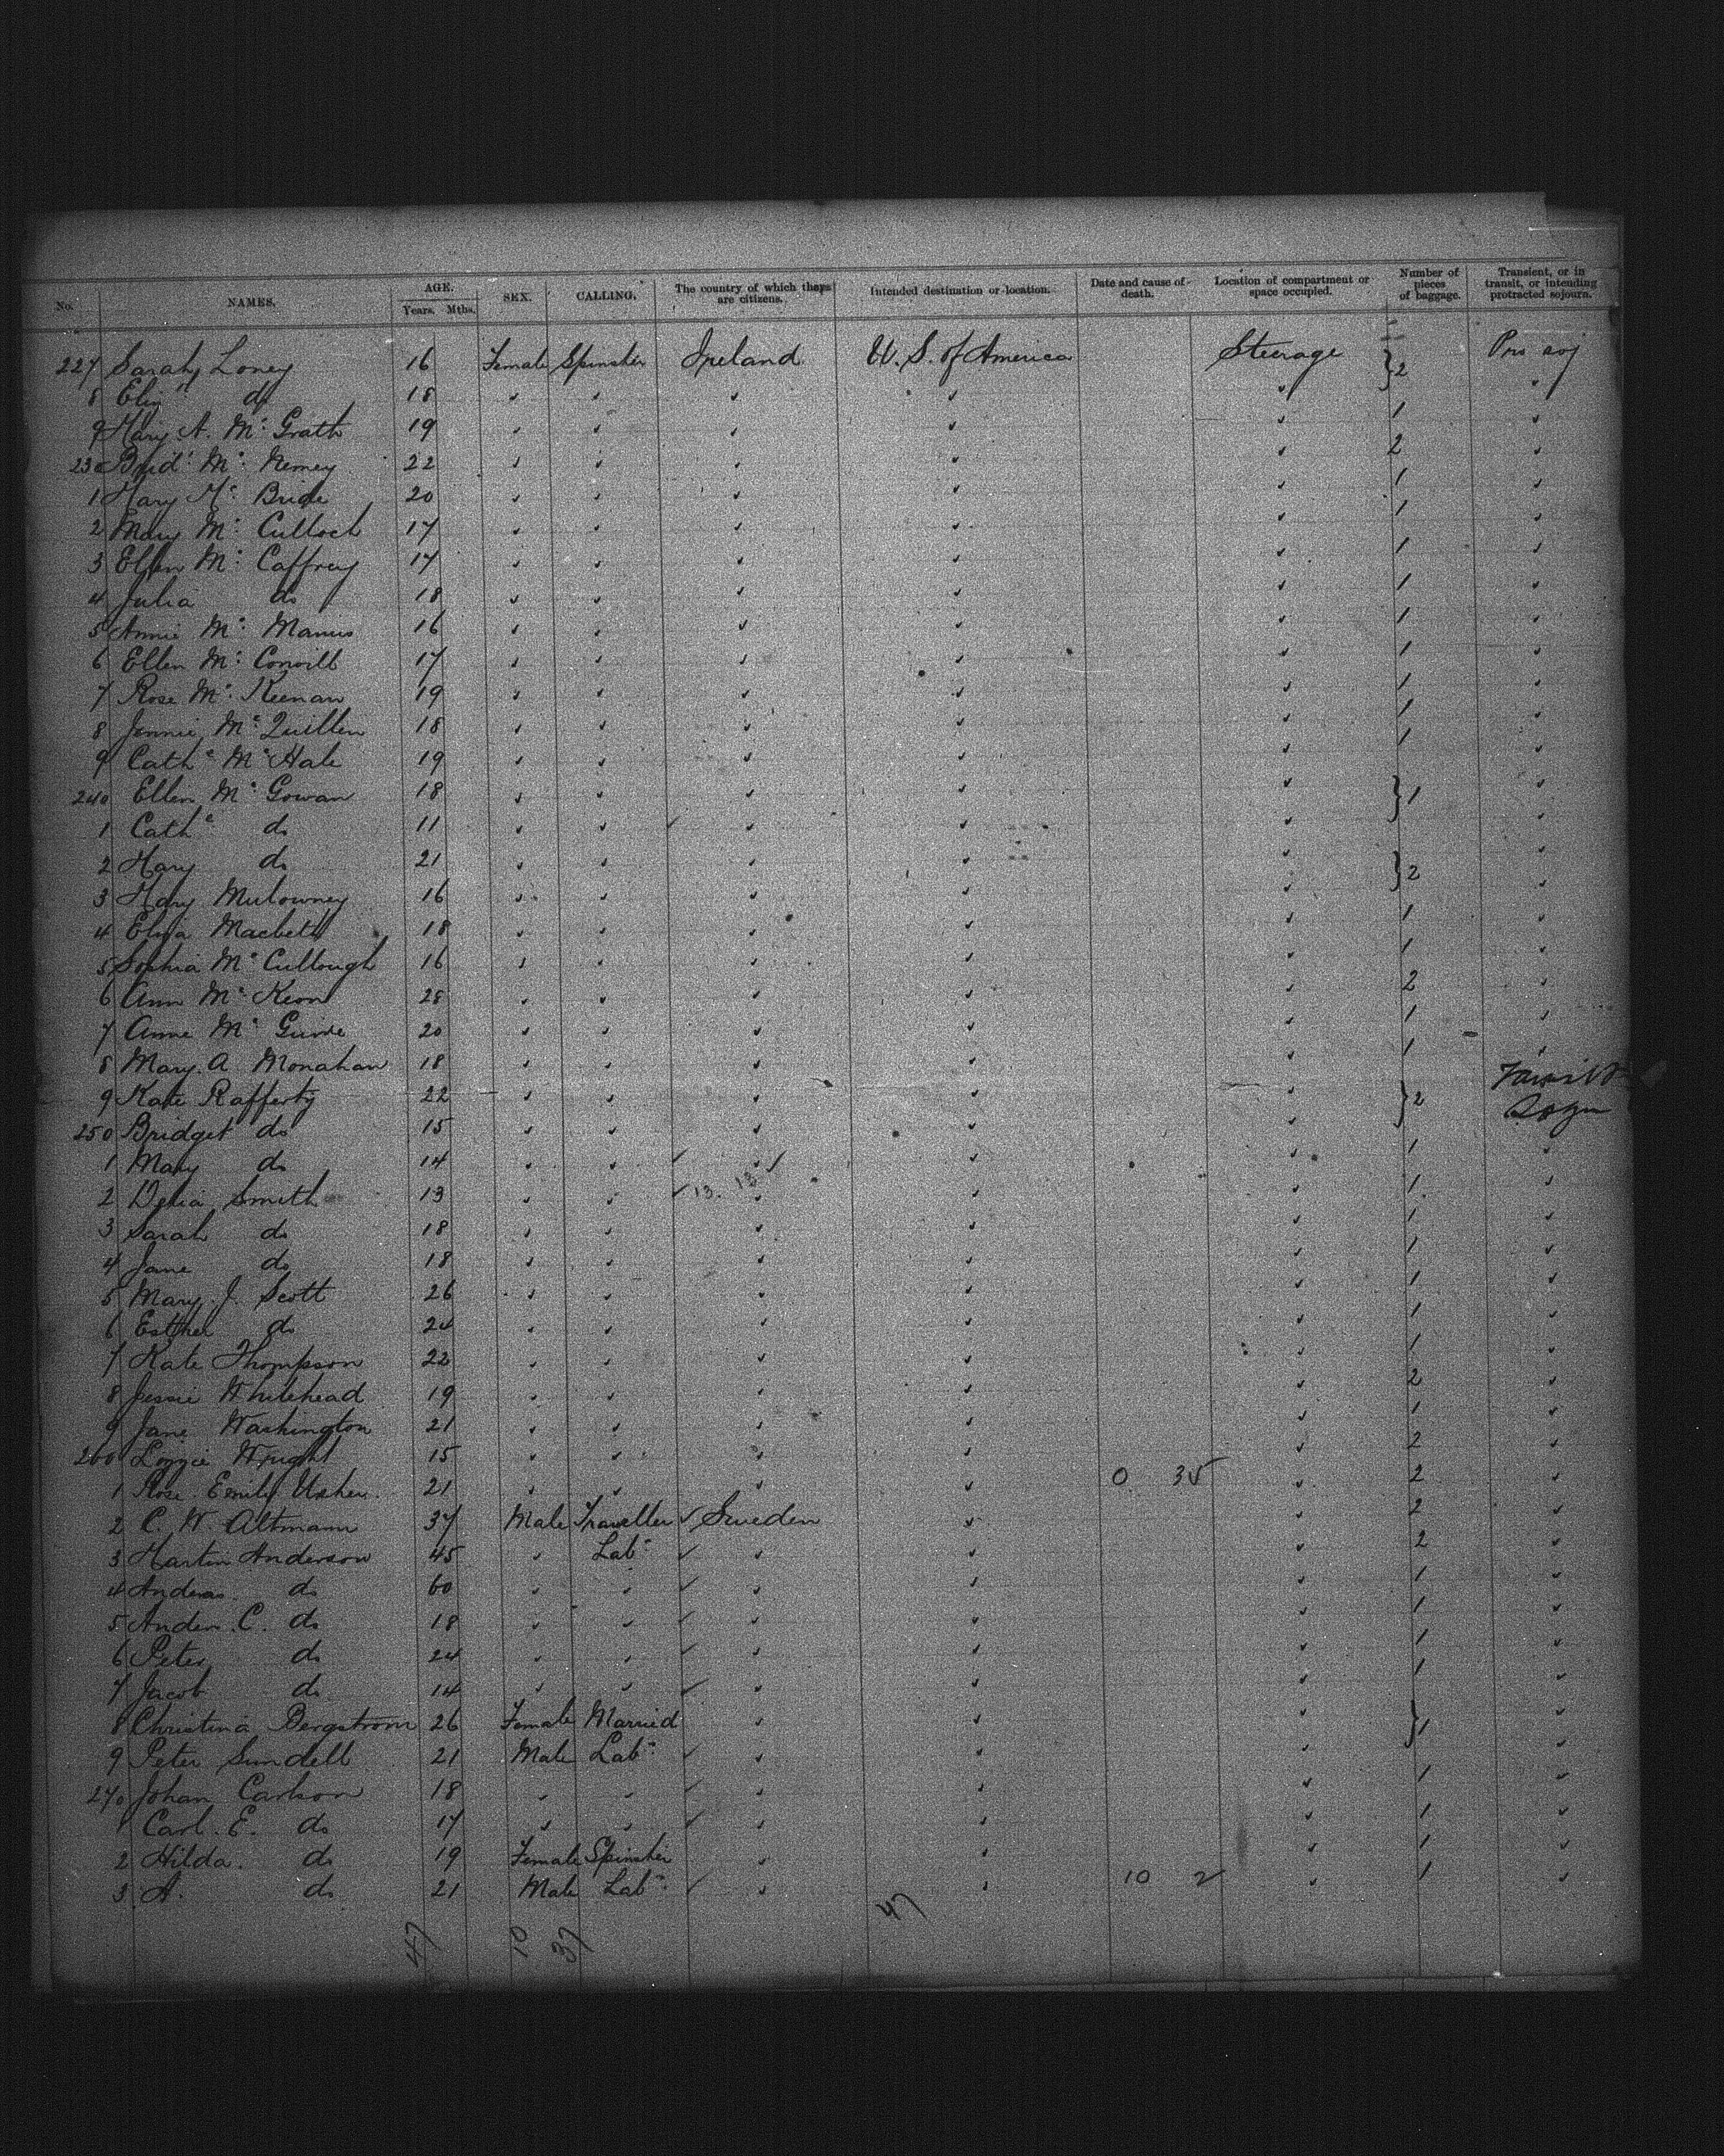 No. NAMES. AGE. Years. Mths. SEX. CALLING. The country of which they are citizens. Intended destination or location. Date and cause of death. Location of compartment or space occupied. Number of pieces of baggage. Transient, or in transit, or intending protracted sojourn.
227 Sarah Loney 16 Female Spinster Ireland U. S. of America Steerage } 2 Pro soj
8 Eliz do 18 ✓ ✓ ✓ ✓ ✓ ✓
9 Mary A. Mc Grath 19 ✓ ✓ ✓ ✓ 1 ✓
230 Brid. Mc Nerney 22 ✓ ✓ ✓ ✓ ✓ 2 ✓
1 Mary Mc Bride 20 ✓ ✓ ✓ ✓ ✓ 1 ✓
2 Mary Mc Culloch 17 ✓ ✓ ✓ ✓ ✓ 1 ✓
3 Ellen Mc Caffrey 17 ✓ ✓ ✓ ✓ ✓ 1 ✓
4 Julia do 18 ✓ ✓ ✓ ✓ ✓ 1 ✓
5 Annie Mc Manus 16 ✓ ✓ ✓ ✓ ✓ 1 ✓
6 Ellen Mc Convill 17 ✓ ✓ ✓ ✓ ✓ 1 ✓
7 Rose Mc Keenan 19 ✓ ✓ ✓ ✓ ✓ 1 ✓
8 Jennie Mc Quillen 18 ✓ ✓ ✓ ✓ ✓ 1 ✓
9 Cathe Mc Hale 19 ✓ ✓ ✓ ✓ ✓ 1 ✓
240 Ellen Mc Gowan 18 ✓ ✓ ✓ ✓ ✓ } 1 ✓
1 Cathe do 11 ✓ ✓ ✓ ✓ ✓ ✓ ✓
2 Mary do 21 ✓ ✓ ✓ ✓ ✓ } 2 ✓
3 Mary Mulowney 16 ✓ ✓ ✓ ✓ ✓ ✓
4 Eliza Macbeth 18 ✓ ✓ ✓ ✓ ✓ 1 ✓
5 Sophia Mc Cullough 16 ✓ ✓ ✓ ✓ ✓ 1 ✓
6 Ann Mc Keon 28 ✓ ✓ ✓ ✓ ✓ 2 ✓
7 Anne Mc Guire 20 ✓ ✓ ✓ ✓ ✓ 1 ✓
8 Mary. A Monahan 18 ✓ ✓ ✓ ✓ ✓ 1 ✓
9 Kate Rafferty 22 ✓ ✓ ✓ ✓ ✓ } 2
250 Bridget do 15 ✓ ✓ ✓ ✓ ✓
1 Mary do 14 ✓ ✓ ✓ ✓ ✓ ✓ 1 ✓
2 Delia Smith 13 ✓ ✓ ✓ 13. 13 ✓ ✓ ✓ 1 ✓
3 Sarah do 18 ✓ ✓ ✓ ✓ ✓ 1 ✓
4 Jane do 18 ✓ ✓ ✓ ✓ ✓ 1 ✓
5 Mary. J. Scott 26 ✓ ✓ ✓ ✓ ✓ 1 ✓
6 Esther do 24 ✓ ✓ ✓ ✓ ✓ 1 ✓
7 Kate Thompson 22 ✓ ✓ ✓ ✓ ✓ 1 ✓
8 Jessie Whitehead 19 ✓ ✓ ✓ ✓ ✓ 2 ✓
9 Jane Washington 21 ✓ ✓ ✓ ✓ ✓ 1 ✓
260 Lizzie Wright 15 ✓ ✓ ✓ ✓ ✓ 2 ✓
1 Rose. Emily Usher. 21 ✓ ✓ ✓ ✓ 0 35 ✓ 2 ✓
2 C. W. Altmann 37 Male Traveller ✓ Sweden ✓ ✓ 2 ✓
3 Martin Anderson 45 ✓ Labr ✓ ✓ ✓ ✓ 2 ✓
4 Andreas do 60 ✓ ✓ ✓ ✓ ✓ ✓ 1 ✓
5 Anders. C. do 18 ✓ ✓ ✓ ✓ ✓ ✓ 1 ✓
6 Peter do 24 ✓ ✓ ✓ ✓ ✓ ✓ 1 ✓
7 Jacob do 14 ✓ ✓ ✓ ✓ ✓ ✓ 1 ✓
8 Christina Bergstrom 26 Female Married ✓ ✓ ✓ } 1 ✓
9 Peter Sundell 21 Male Labr ✓ ✓ ✓ ✓ ✓
270 Johan Carlson 18 ✓ ✓ ✓ ✓ ✓ ✓ 1 ✓
1 Carl. E. do 17 ✓ ✓ ✓ ✓ ✓ ✓ 1 ✓
2 Hilda. do 19 Female Spinster ✓ ✓ ✓ 1 ✓
3 A. do 21 Male Labr ✓ ✓ ✓ 10 2 ✓ 1 ✓
47 10 37 47